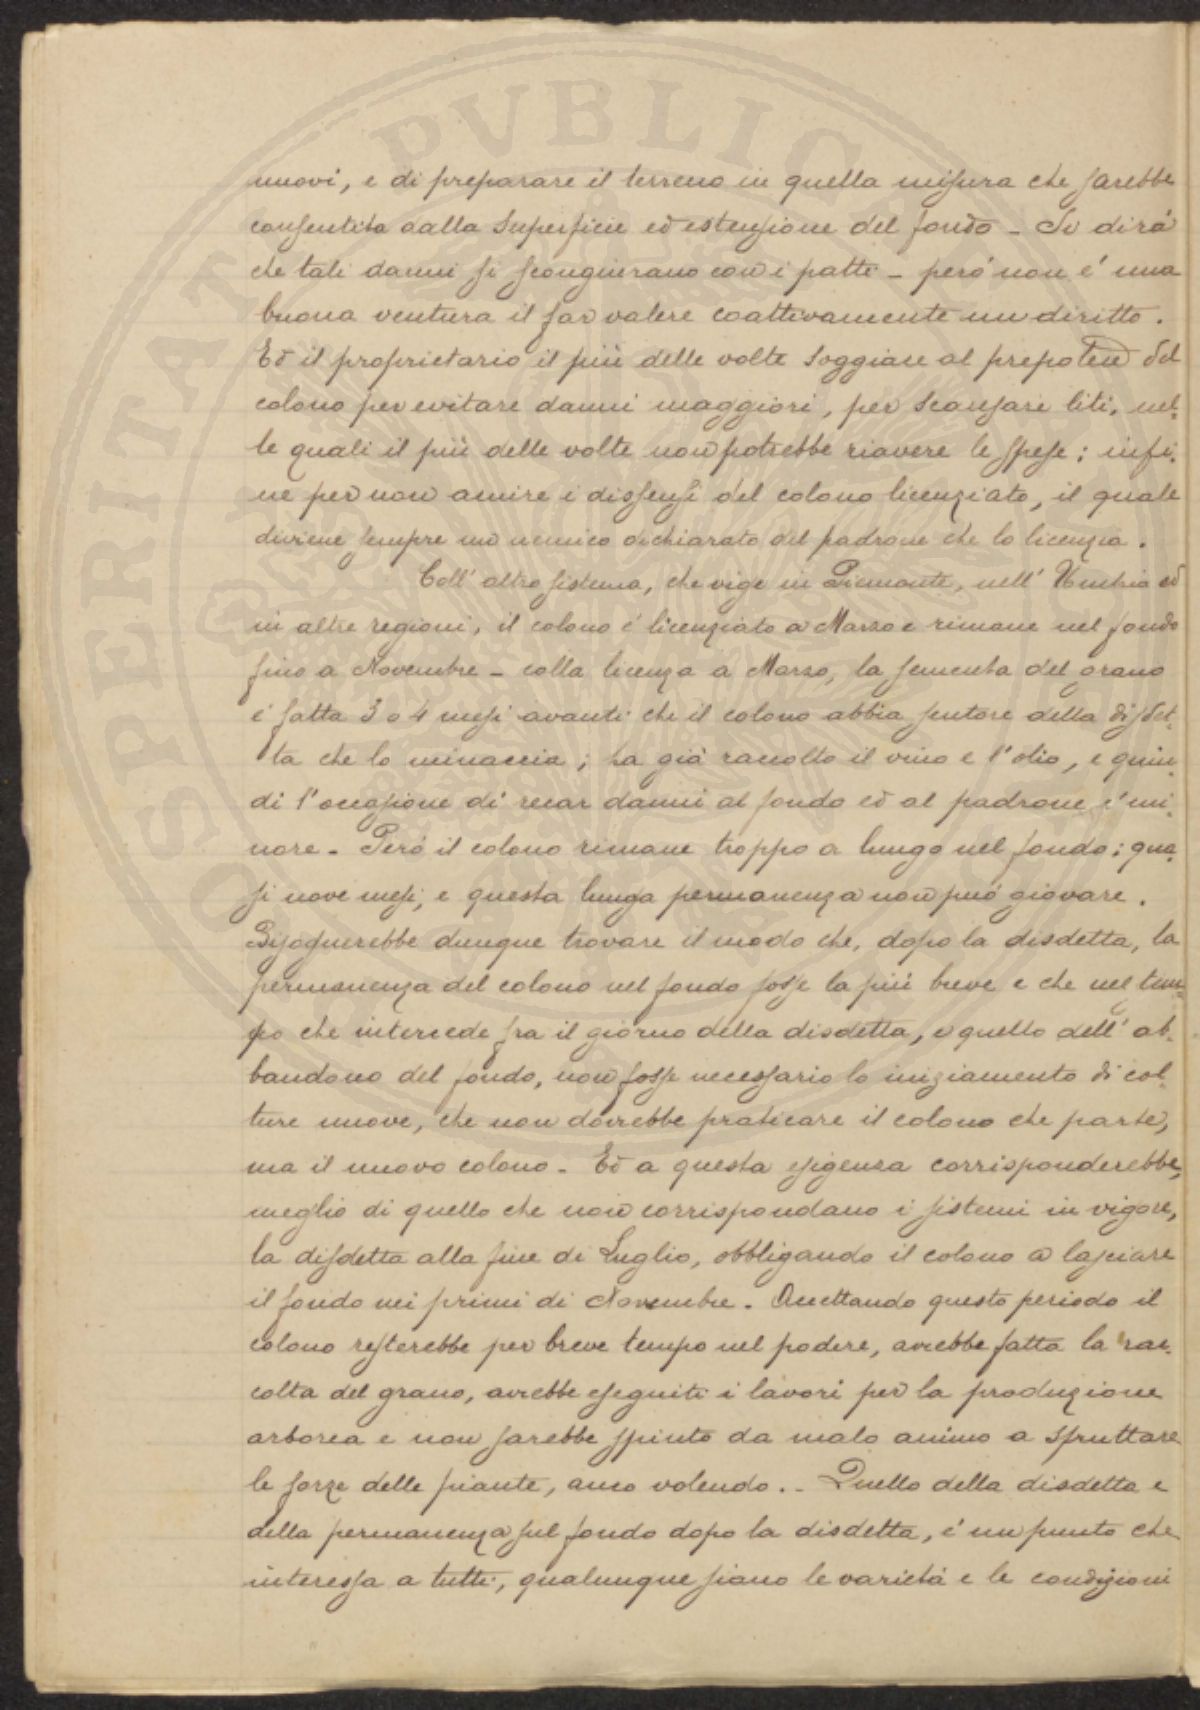 nuovi, e di preparare il terreno in quella misura che sarebbe
consentita dalla superficie ed estensione del fondo - Si dirà
che tali danni si scongiurano con i patti - però non é una
buona ventura il far valere coattivamente un diritto.
Ed il proprietario il più delle volte soggiace al prepotere del
colono per evitare danni maggiori, per scansare liti, nel-
le quali il più delle volte non potrebbe riavere le spese; infi-
ne per non amire i dissensi del colono licenziato, il quale
diviene sempre un nemico dichiarato del padrone che lo licenzia.
Coll' altro sistema, che vige in Piemonte, nell' Umbria ed
in altre regioni, il colono é licenziato a Marzo e rimane nel fondo
fino a Novembre - colla licenza a Marzo, la sementa del grano
é fatta 3 o 4 mesi avanti che il colono abbia sentore della disdet-
ta che lo minaccia; ha già raccolto il vino e l'olio, e quin-
di l'occasione di recar danni al fondo ed al padrone é mi-
nore. Peró il colono rimane troppo a lungo nel fondo; qua-
si nove mesi, e questa lunga permanenza non puó giovare.
Bisognerebbe dunque trovare il modo che, dopo la disdetta, la
permanenza del colono nel fondo fosse la più breve e che nel tem-
po che intercede fra il giorno della disdetta, e quello dell' ab-
bandono del fondo, non fosse necessario lo iniziamento di col-
ture nuove, che non dovrebbe praticare il colono che parte,
ma il nuovo colono - Ed a questa esigenza corrisponderebbe,
meglio di quello che non corrispondano i sistemi in vigore,
la disdetta alla fine di Luglio, obbligando il colono a lasciare
il fondo nei primi di Novembre. Accettando questo periodo il
colono resterebbe per breve tempo nel podere, avrebbe fatta la rac-
colta del grano, avrebbe eseguiti i lavori per la produzione
arborea e non sarebbe spinto da malo animo a sfruttare
le forze delle piante, anco volendo. - Quello della disdetta e
della permanenza sul fondo dopo la disdetta, é un punto che
interessa a tutti, qualunque siano le varietà e le condizioni